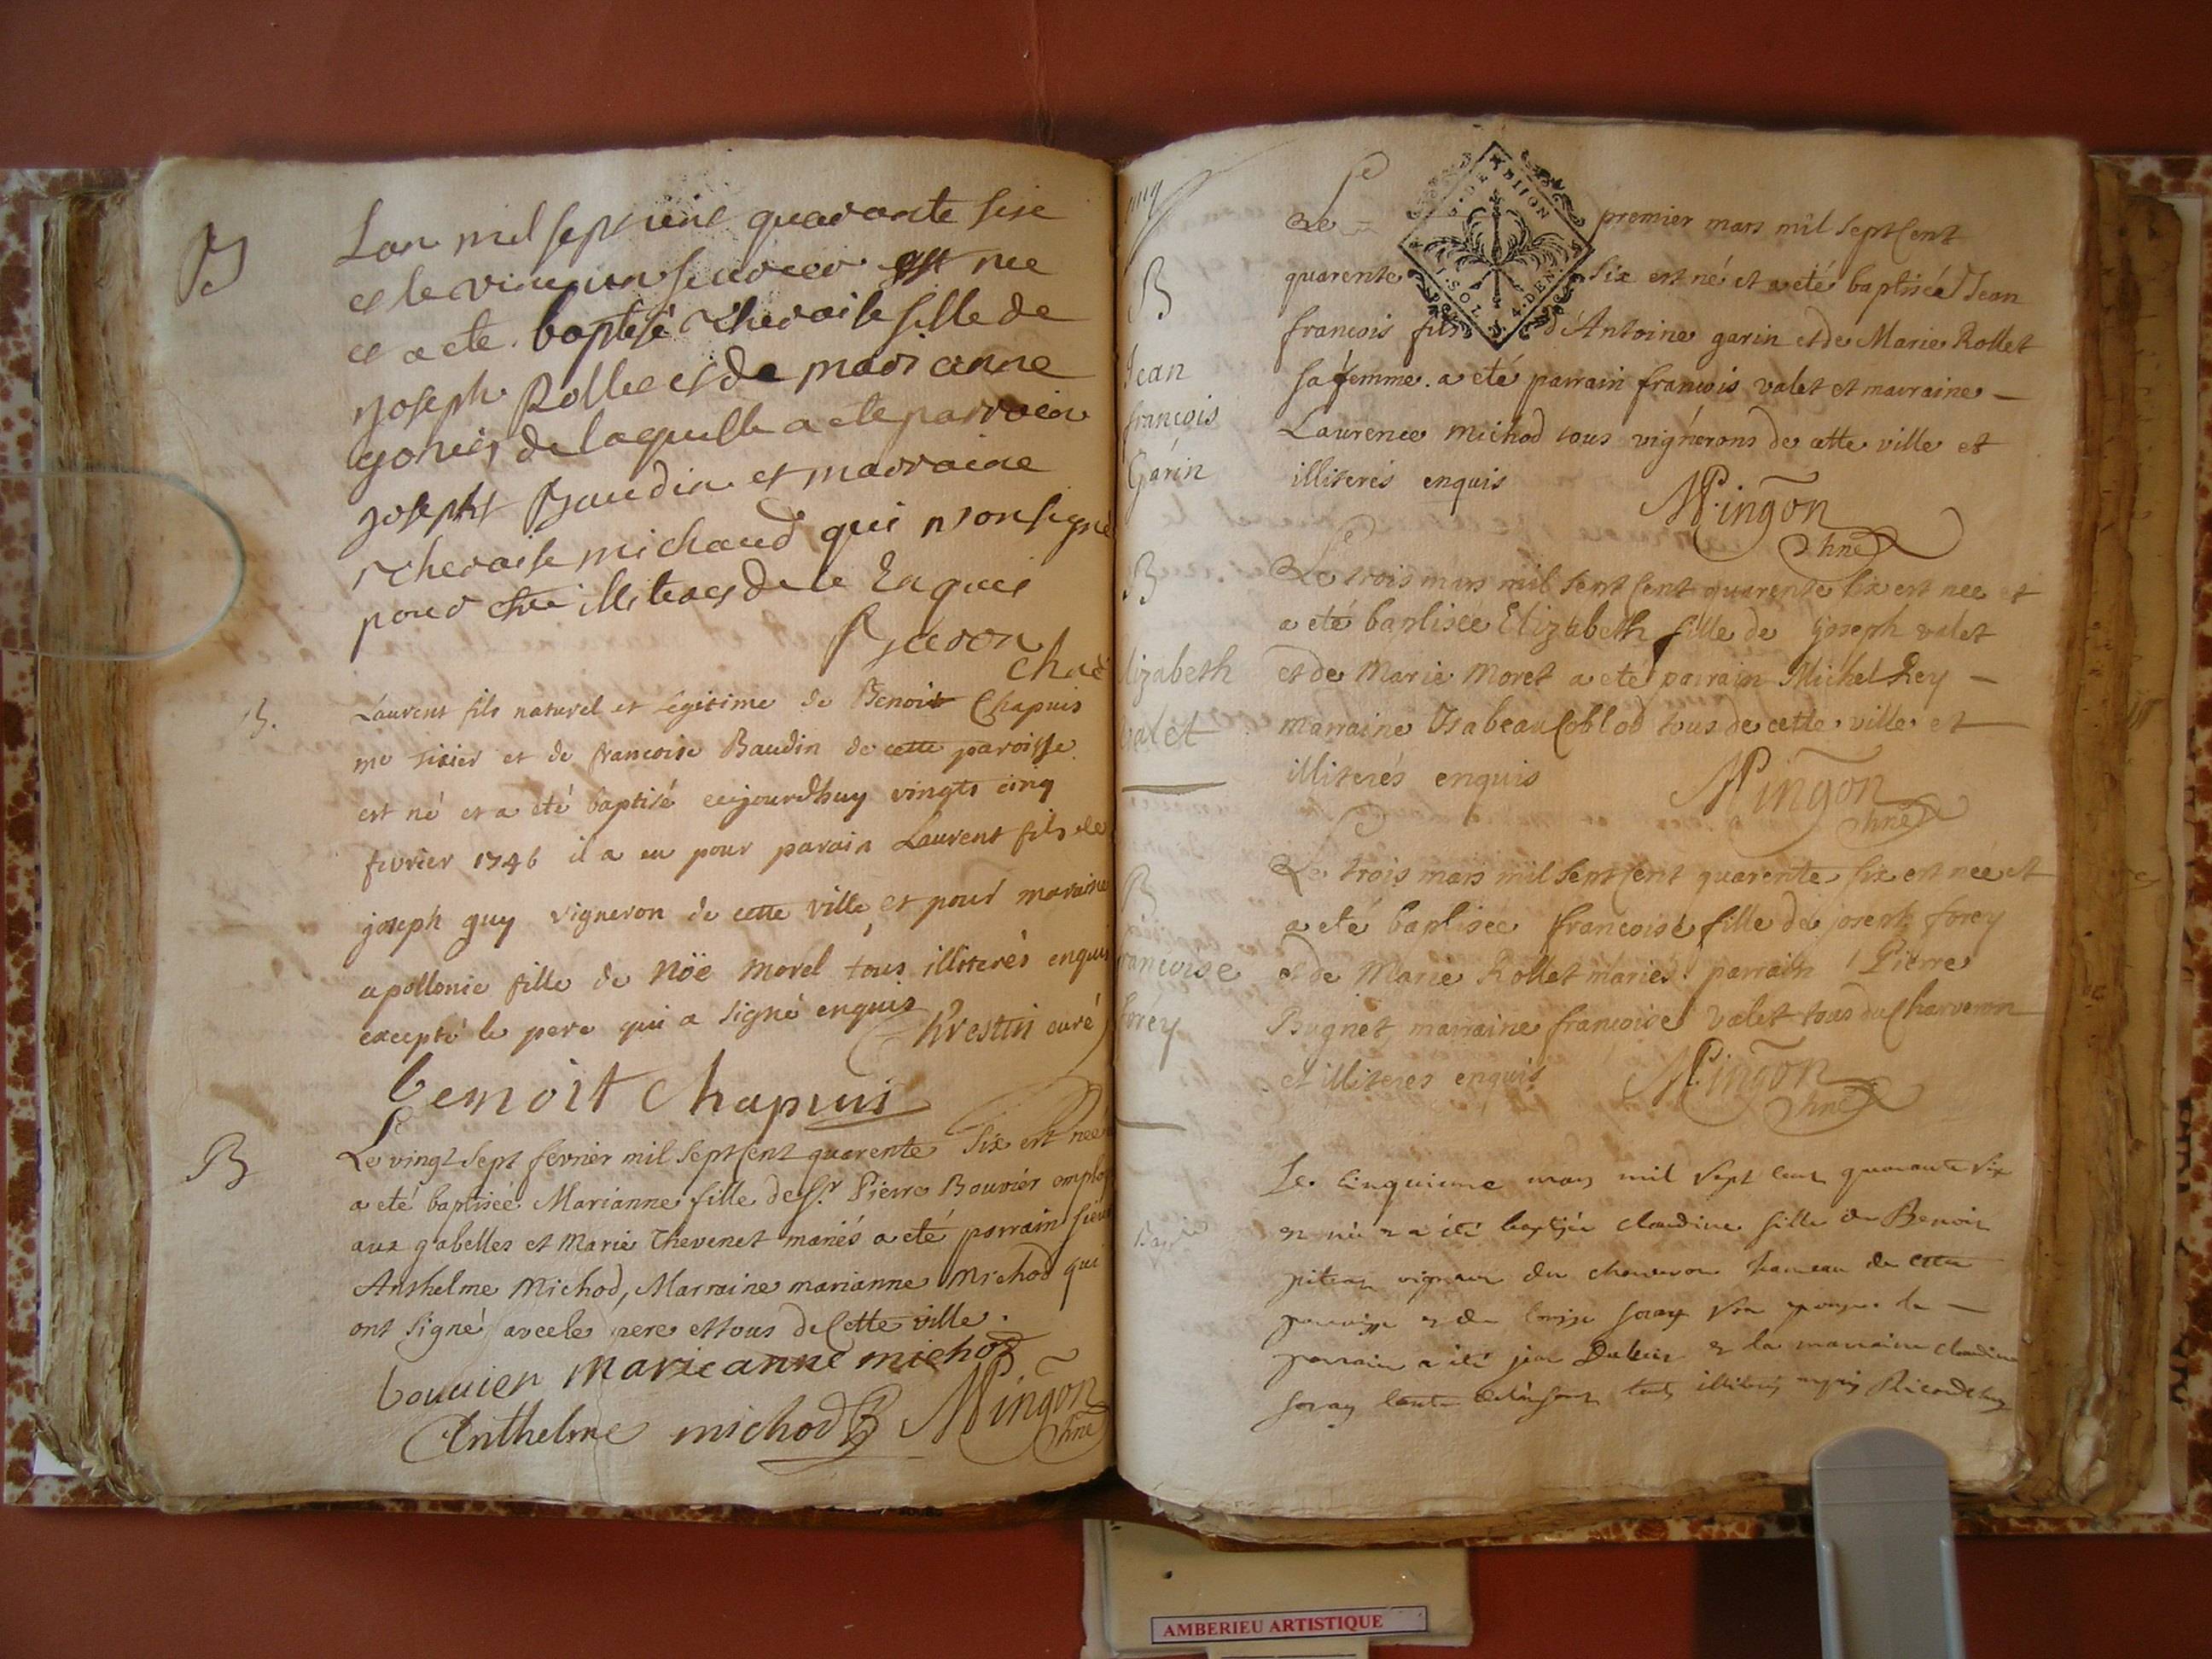 B
Lan mil sept cent quarante sixe
et le vint un feuvrier est nee
et a ete baptisé theraise fille de
joseph Rollet et de marianne
gonet de laquelle a ete parrain
joseph Baudin et marraine
theraise michaud qui n'on signé
pour etre illiteres de le Enquis
B.
Laurent fils naturel et legitime de Benoit Chapuis
me tixier et de francoise Baudin de cette paroisse
est né et a été baptisé aujourdhuy vingts cinq
fevrier 1746 il a eu pour parain Laurent fils de
joseph guy vigneron de cette ville et pour maraine
apollonie fille de Nöe morel tous illiterés enquis
excepté le pere qui a signé enquis
curé
benoit Chapuis
B
Le vingt sept fevrier mil sept Cent quarente six est née
a eté baptisée Marianne fille de Sr. Pierre Bouvier employ
aux gabelles et Marie Thevenet mariés a eté parrain sieur
Anthelme Michod, Marraine marianne Michod qui
ont signé avec le pere et tous de Cette ville.
bouvier Marie anne michod
Anthelme michod Mingon
AMBERIEU ARTISTIQUE
B
Jean
françois
Garin
G. DE DIJON
1. SOL 4. DEN.
Le premier mars mil sept Cent
quarente six est né et a eté baptisée Jean
francois fils d'Antoine garin et de Marie Rollet
sa femme. a eté parrain francois valet et marraine —
Laurence Michod tous vignerons de cette ville et
illiterés enquis
Mingon
B
lizabeth
valet
Le trois mars mil sept Cent quarente six est nee et
a eté baptisée Elizabeth fille de joseph valet
et de Marie Moret a eté parrain Michel Rey —
marraine Isabeau Coblod tous de cette ville et
illiterés enquis
Mingon
B
rancoise
forey
Le trois mars mil sept Cent quarente six est née et
a eté baptisée francoise fille de joseph forey
et de Marie Rollet mariés parrain Pierre
Bugnet, marraine francoise Valet tous du Charveron
et illiteres enquis
Mingon
Le cinquieme mars mil sept cent quarante six
est née et a été baptisée claudine fille de Benoit
vigneron du charveron hameau de cette
paroisse et de foray son epouse le —
parrain a été jean et la marraine claudine
foray illiteres enquis